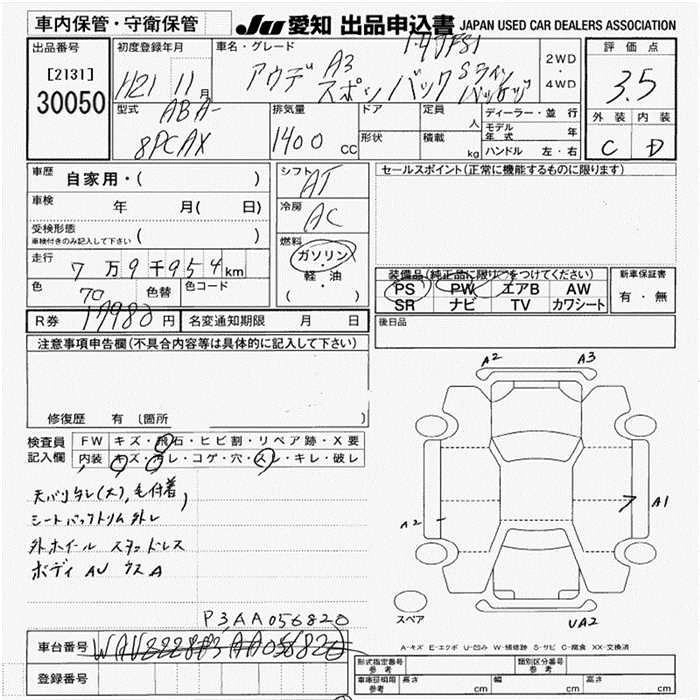 車内保管・守衛保管
JU 愛知 出品申込書 JAPAN USED CAR DEALERS ASSOCIATION
出品番号
[2131]
30050
初度登録年月
H21 11月
車名・グレード
アウディ A3
スポーツバック
1.4TFSI
Sライン
パッケージ
2WD
・
4WD
評価点
3.5
外装 内装
C D
型式
ABA-
8PCAX
排気量
1400 cc
ドア
形状
定員 人
積載 kg
ディーラー・並行
モデル年式 年
ハンドル 左・右
車歴 自家用・( )
車検 年 月( 日)
受検形態
車検付きのみ記入して下さい ( )
走行 7万9千954km
色 色替 色コード
R券 17980円 名変通知期限 月 日
シフト AT
冷房 AC
燃料
ガソリン
・
軽・油
( )
セールスポイント(正常に機能するものに限ります)
装備品(純正品に限り○をつけてください)
PS PW エアB AW
SR ナビ TV カワシート
新車保証書
有・無
後日品
注意事項申告欄(不具合内容等は具体的に記入して下さい)
修復歴 有 [箇所 ]
検査員
記入欄
FW キズ・飛石・ヒビ割・リペア跡・X要
内装 キズ・汚レ・コゲ・穴・スレ・キレ・破レ
天バリタレ(大), 毛付着,
シートバックトリム外レ
外ホイール スタッドレス
ボディ AU ウスA
A2
A3
A1
A2
UA2
スペア
P3AA056820
車台番号
登録番号
A-キズ E-エクボ U-凹み W-補修跡 S-サビ C-腐食 XX-交換済
形式指定番号 参考
類別区分番号 参考
車庫証明用 参考 長さ cm 幅 cm 高さ cm